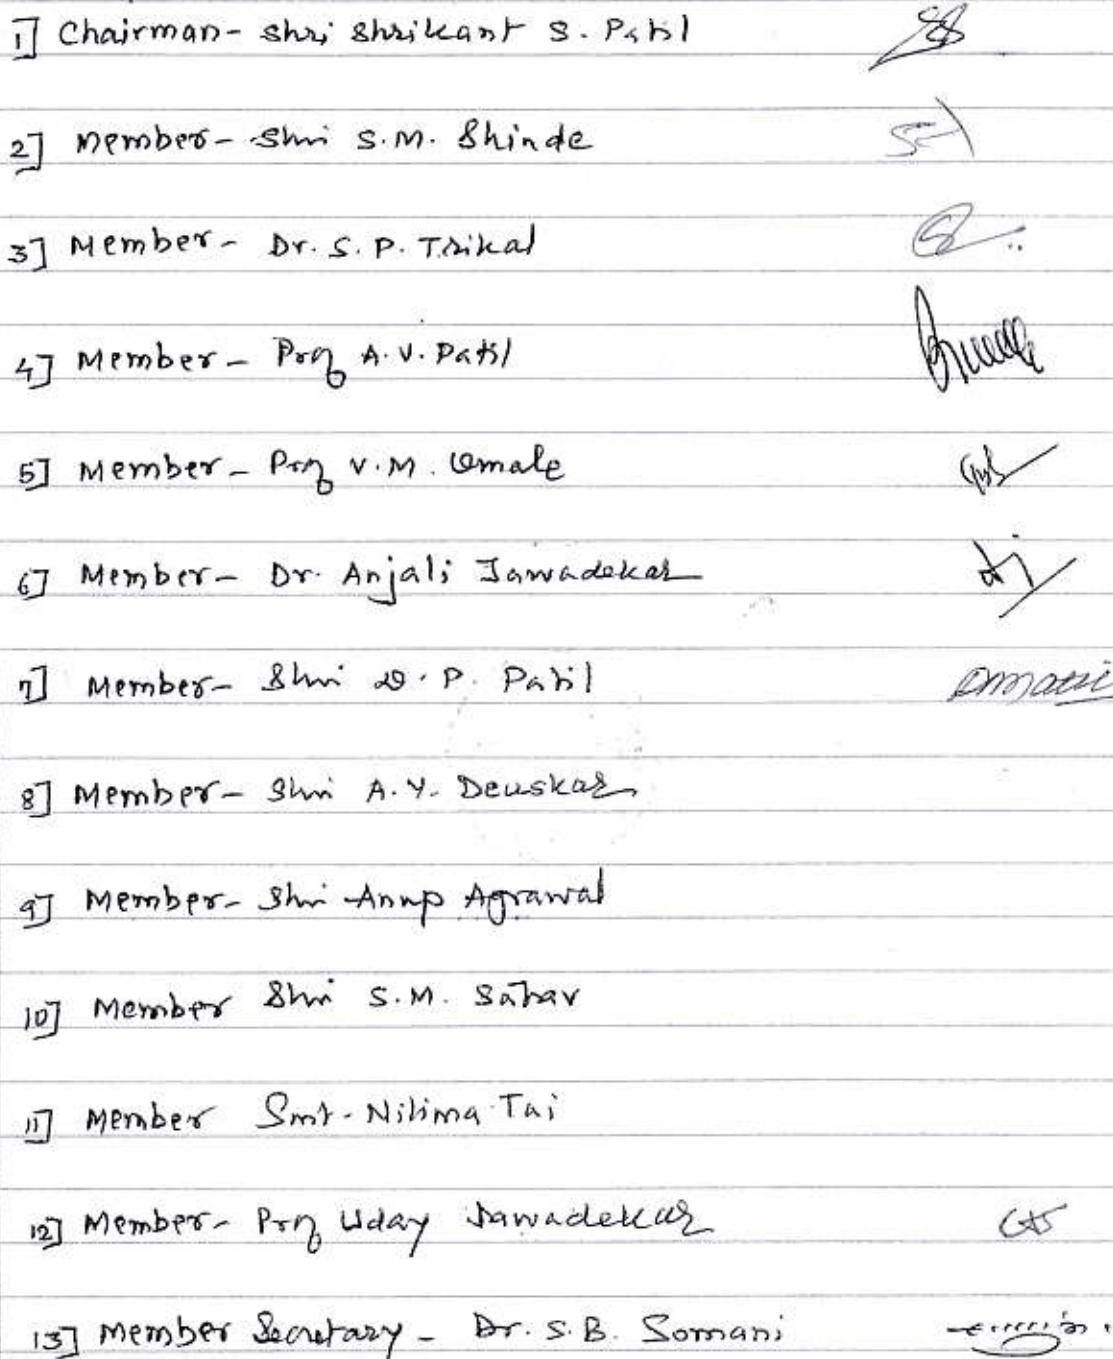 1] Chairman- Shri Shrikant S. Patil
2] Member- Shri S.M. Shinde
3] Member- Dr. S. P. Trikal
4] Member- Prof A.V. Patil
5] Member- Prof V.M. Umale
6] Member- Dr. Anjali Jawadekar
7] Member- Shri D. P. Patil
8] Member- Shri A.Y. Deuskar
9] Member- Shri Anup Agrawal
10] Member Shri S.M.
11] Member Smt. Nilima Tai
12] Member- Prof Uday Jawadekar
13] Member Secretary - Dr. S.B. Somani